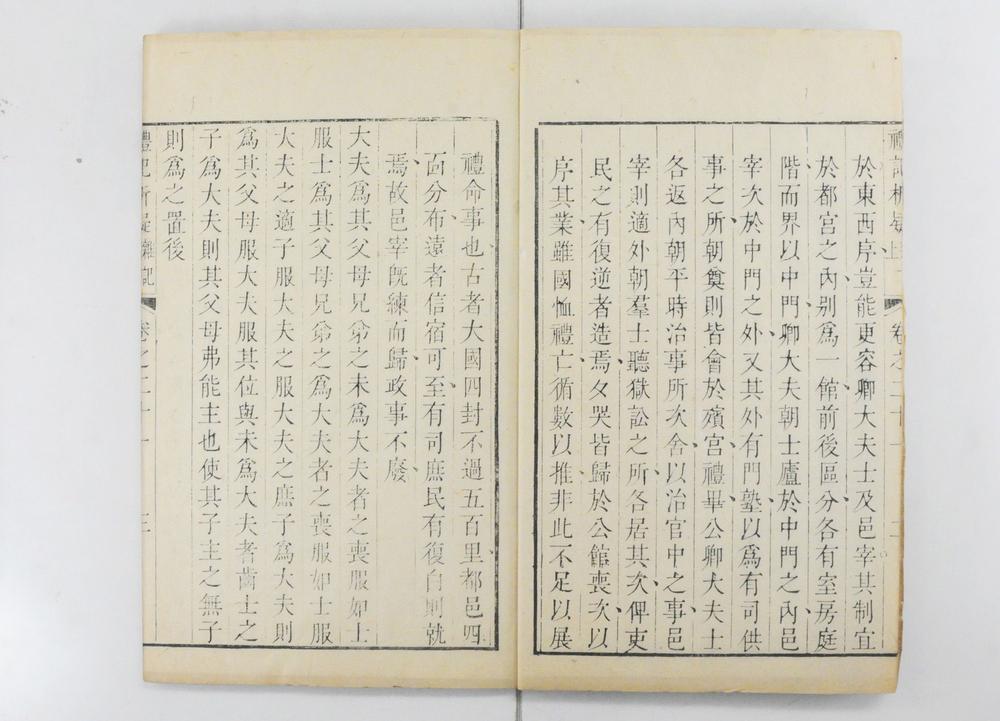 於東西序豈能更容卿大夫士及邑宰其制宜
於都宮之內别爲一館前後區分各有室房庭
階而界以中門卿大夫朝士廬於中門之內邑
宰次於中門之外又其外有門塾以爲有司供
事之所朝奠則皆會於殯宮禮畢公卿大夫士
各返內朝平時治事所次舍以治官中之事邑
宰則適外朝羣士聽獄訟之所各居其次俾吏
民之有復逆者造焉夕哭皆歸於公館喪次以
序其業雖國恤禮亡循數以推非此不足以展
禮命事也古者大國四封不過五百里都邑四
面分布遠者信宿可至有司庶民有復白則就
焉故邑宰旣練而歸政事不廢
大夫爲其父母兄弟之未爲大夫者之喪服如士
服士爲其父母兄弟之爲大夫者之喪服如士服
大夫之適子服大夫之服大夫之庶子爲大夫則
爲其父母服大夫服其位與未爲大夫者齒士之
子爲大夫則其父母弗能主也使其子主之無子
則爲之置後
禮記析疑雜記 卷之二十一 三